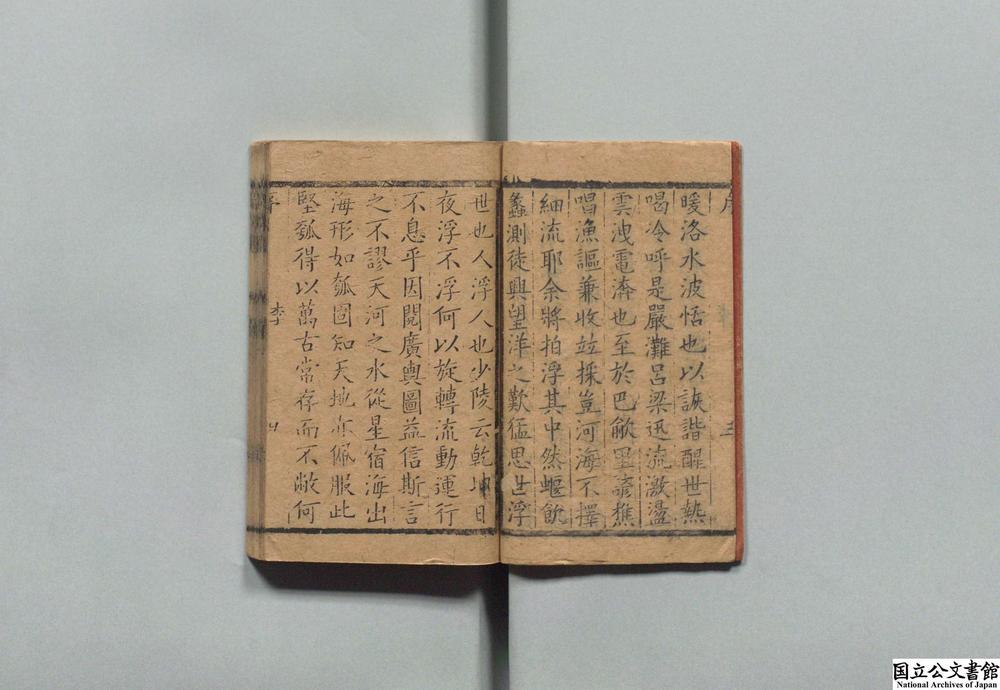 暖洛水波恬也以詼諧醒世熱
喝冷呼是嚴灘呂梁迅流激盪
雲洩電濟也至於巴歈里諺樵
唱漁謳兼收竝採豈河海不擇
細流耶余將拍浮其中然蝘飲
蠡測徒興望洋之歎猛思世浮
世也人浮人也少陵云乾坤日
夜浮不浮何以旋轉流動運行
不息乎因閱廣輿圖益信斯言
之不謬天河之水從星宿海出
海形如瓠圖知天地亦佩服此
堅瓠得以萬古常存而不敝何
序
李
国立公文書館
National Archives of Japan